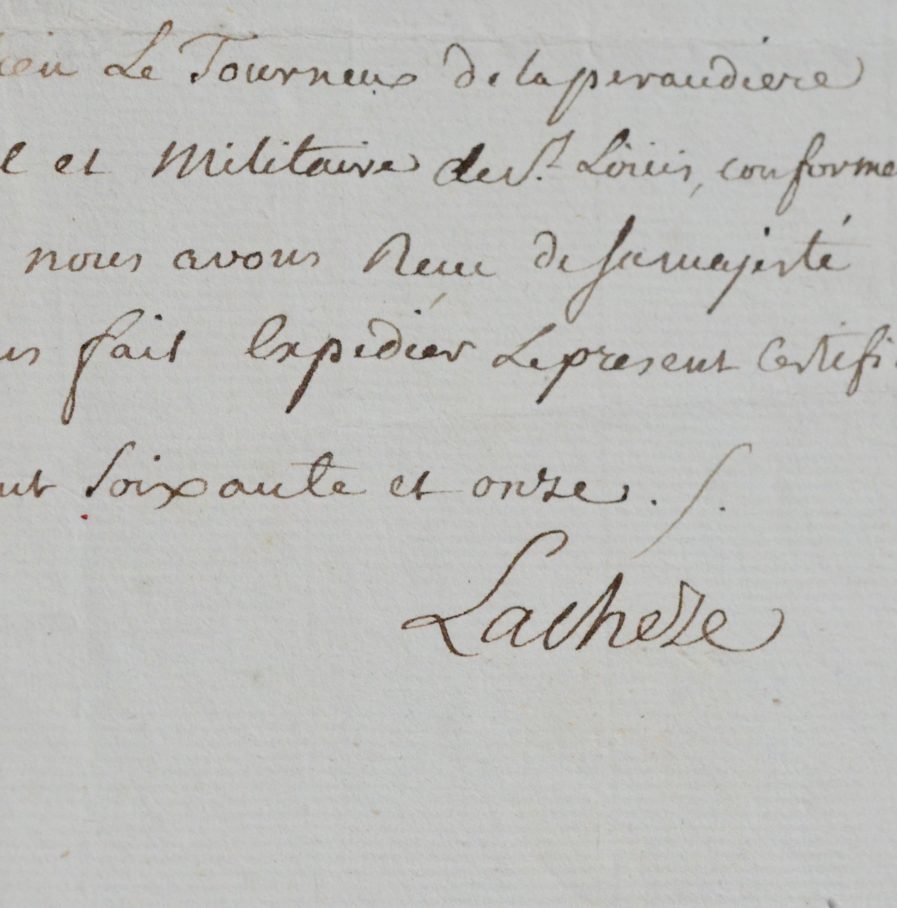 ien Le Tourneux de la peraudiere
l et Militaire de St. Louis, conforme
nous avons Reçu de sa majesté
us fait Expédiér Le present Certifi
nt soixante et onze . /.
Lacheze